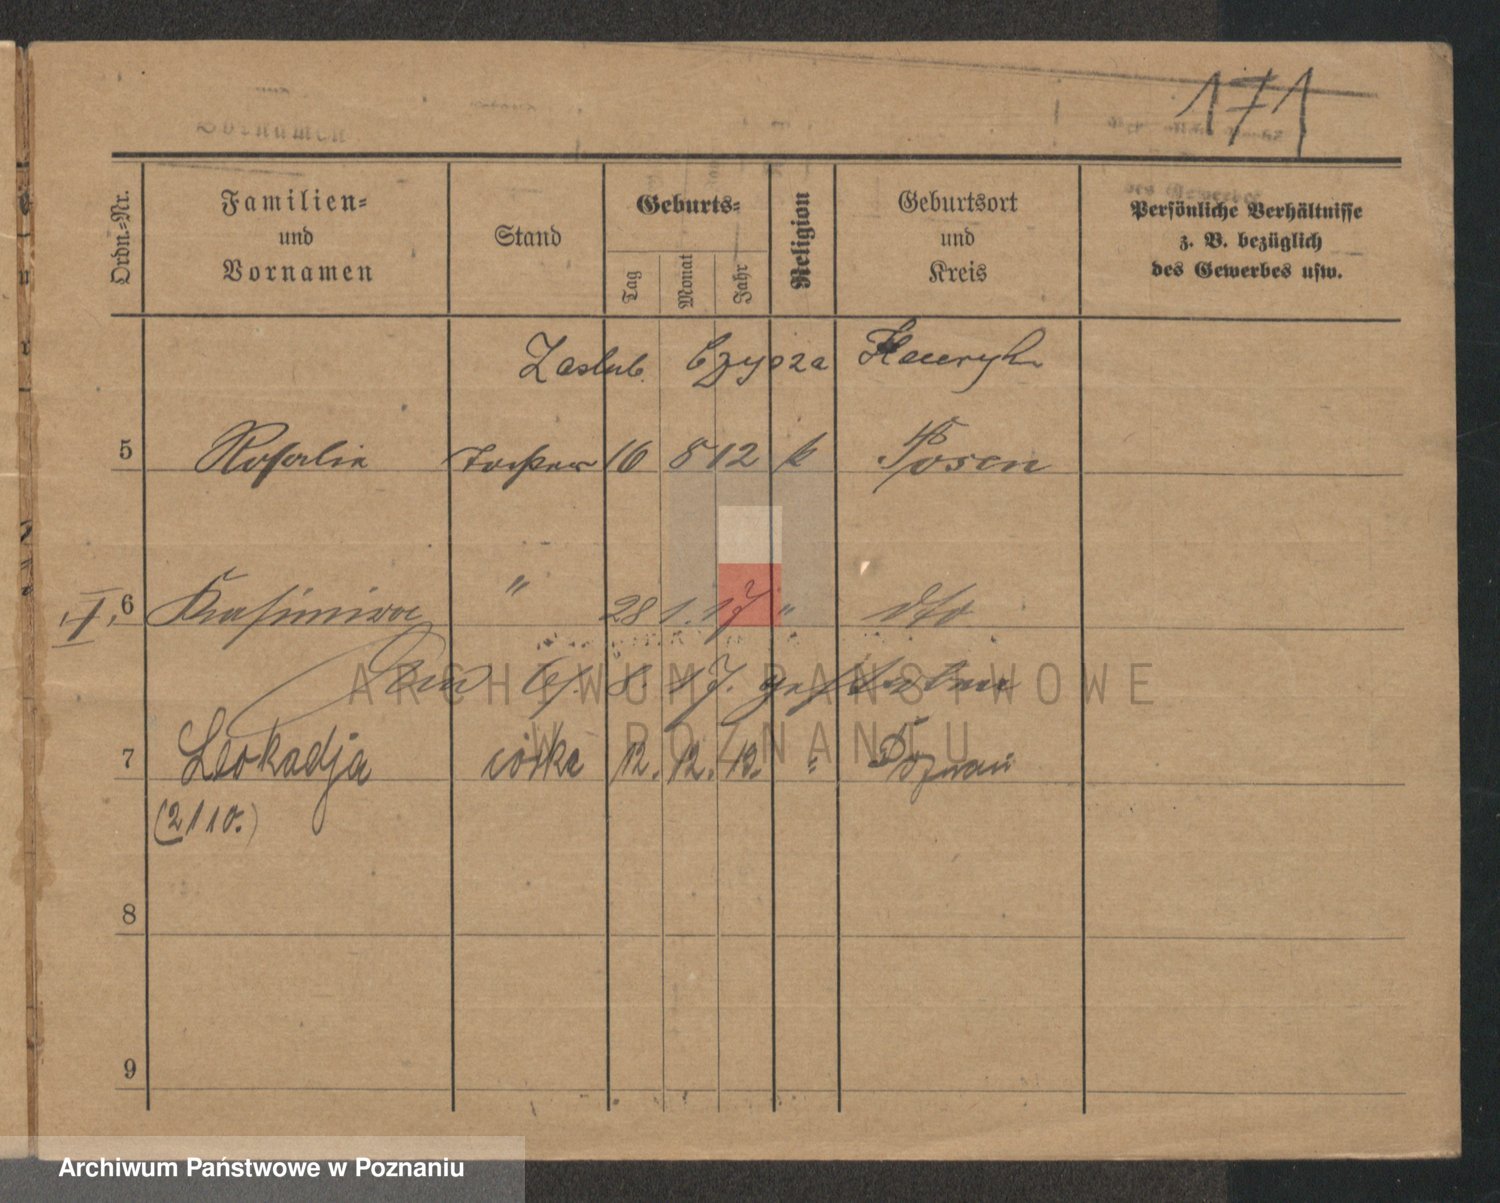 171
Ordn.-Nr.
Familien-
und
Vornamen
Stand
Geburts-
Tag
Monat
Jahr
Religion
Geburtsort
und
Kreis
Persönliche Verhältnisse
z. B. bezüglich
des Gewerbes usw.
Zaślub. Henryk
5 Rosalie Tochter 16 8 12 k Posen
I. 6 Kasimira " 28 1. 17 " dto
8. 17. gestorben
7 Leokadja córka 12. 12. 19. " Poznań
(2110.)
8
9
ARCHIWUM PAŃSTWOWE
W POZNANIU
Archiwum Państwowe w Poznaniu